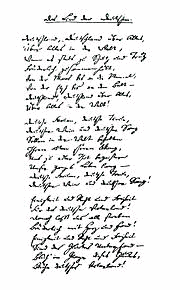 Das Lied der Deutschen.
Deutschland, Deutschland über Alles,
Über Alles in der Welt,
Wenn es stets zu Schutz und Trutze
Brüderlich zusammenhält,
Von der Maas bis an die Memel,
Von der Etsch bis an den Belt –
Deutschland, Deutschland über Alles,
Über Alles in der Welt!
Deutsche Frauen, deutsche Treue,
Deutscher Wein und deutscher Sang
Sollen in der Welt behalten
Ihren alten schönen Klang,
Uns zu edler That begeistern
Unser ganzes Leben lang –
Deutsche Frauen, deutsche Treue,
Deutscher Wein und deutscher Sang!
Einigkeit und Recht und Freiheit
Für das deutsche Vaterland!
Danach lasst uns alle streben
Brüderlich mit Herz und Hand!
Einigkeit und Recht und Freiheit
Sind des Glückes Unterpfand –
Blüh im Glanze dieses Glückes,
Blühe deutsches Vaterland!